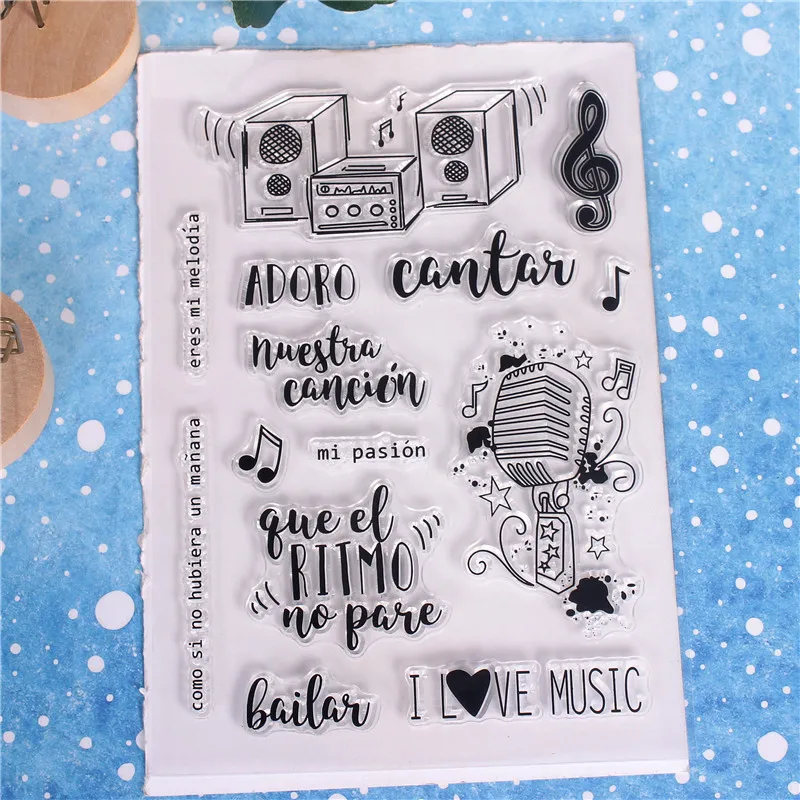 eres mi melodía
como si no hubiera un mañana
ADORO
cantar
nuestra
canción
mi pasión
que el
RITMO
no pare
bailar
I L♥VE MUSIC